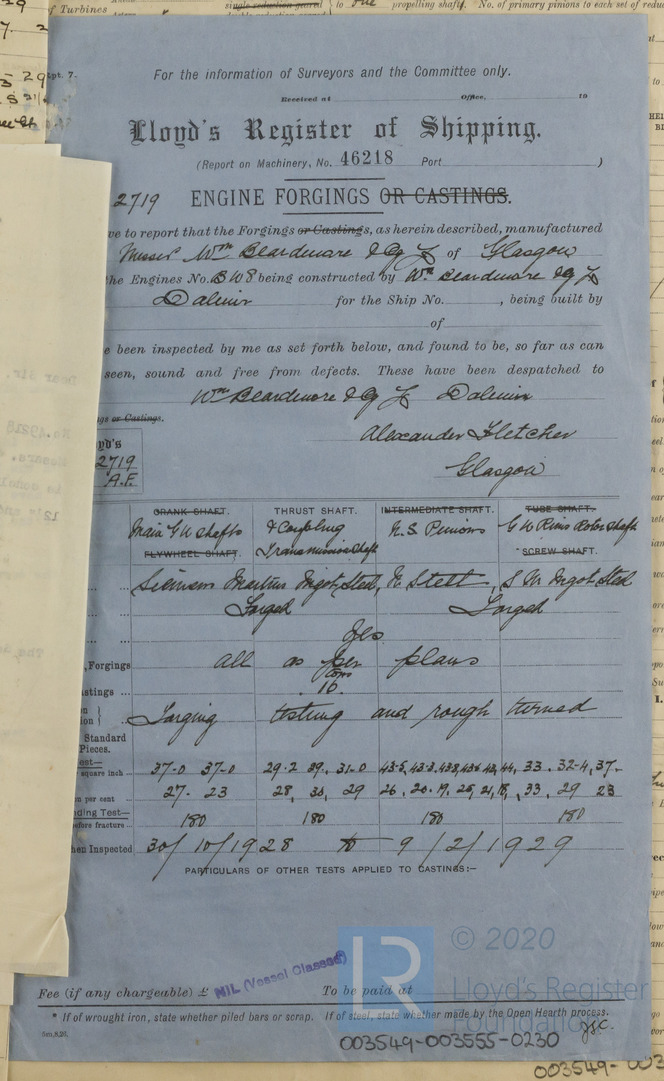 of Turbines
single reduction geared
to one propelling shaft. No. of primary pinions to each set of
For the information of Surveyors and the Committee only.
Received at Office, 19
Lloyd's Register of Shipping.
(Report on Machinery, No. 46218 Port )
2719 ENGINE FORGINGS OR CASTINGS.
ve to report that the Forgings or Castings, as herein described, manufactured
Messrs Wm Beardmore & Co Ld of Glasgow
the Engines No. B 408 being constructed by Wm Beardmore & Co Ld
Dalmuir for the Ship No. , being built by
of
e been inspected by me as set forth below, and found to be, so far as can
seen, sound and free from defects. These have been despatched to
Wm Beardmore & Co Ld Dalmuir
gs or Castings.
Alexander Fletcher
Glasgow
yd's
2719
A.F.
CRANK SHAFT. THRUST SHAFT. INTERMEDIATE SHAFT. TUBE SHAFT.
Main G W Shafts & Coupling N.S. Pinions G W Rims Rotor Shaft
FLYWHEEL SHAFT. Transmission Shaft SCREW SHAFT.
Siemens Martins Ingot Steel, N Steel, S M Ingot Steel
Forged Forged
Yes
, Forgings all as per plans
astings ...
Forging testing and rough turned
Standard
Pieces.
est—
square inch ... 37-0 37-0 29.2 39. 31-0
n per cent 27- 23 28, 29
nding Test—
efore fracture... 180 180 180 180
hen Inspected 30/10/1928 to 9/2/1929
PARTICULARS OF OTHER TESTS APPLIED TO CASTINGS:—
© 2020
LR
Lloyd's Register
Foundation
Fee (if any chargeable) £ NIL (Vessel Classed) To be paid at
* If of wrought iron, state whether piled bars or scrap. If of steel, state whether made by the Open Hearth process.
5m,8,20.
003549-003555-0230